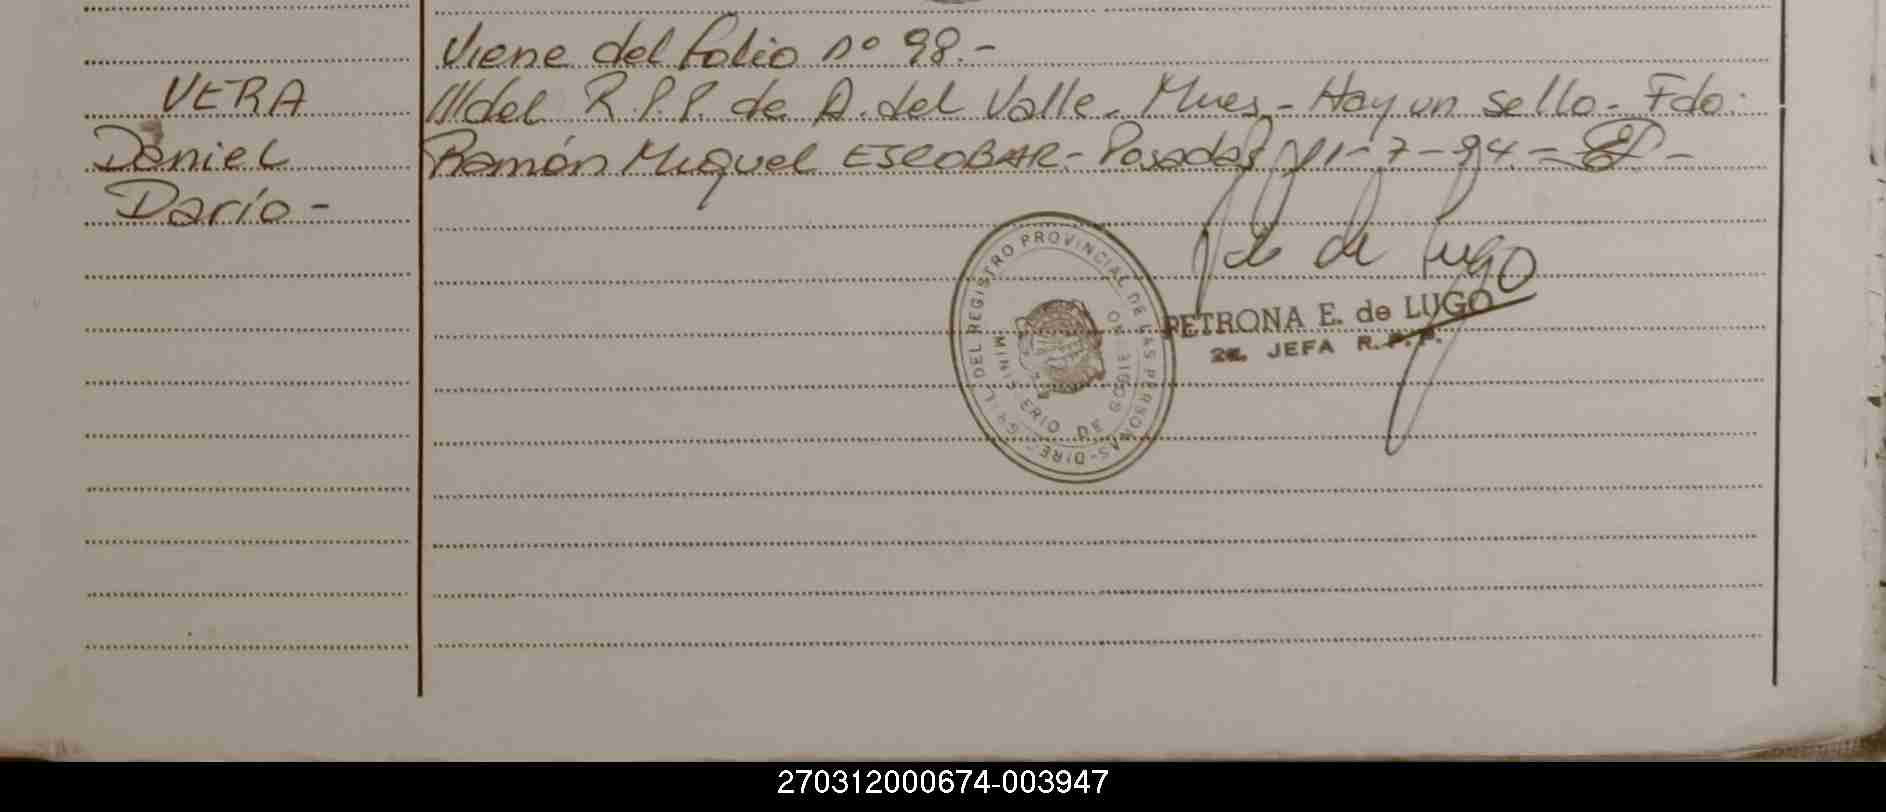 Viene del folio nº 98.-
VERA
Daniel
Darío -
///del R.P.P. de A. del Valle. Mnes.- Hay un sello.- Fdo:
Ramón Miguel ESCOBAR.- Posadas, 11-7-94.-
de Lugo
DEL REGISTRO PROVINCIAL DE LAS PERSONAS-DIREC
MINISTERIO DE GOBIERNO
PETRONA E. de LUGO
JEFA R.P.P.
270312000674-003947